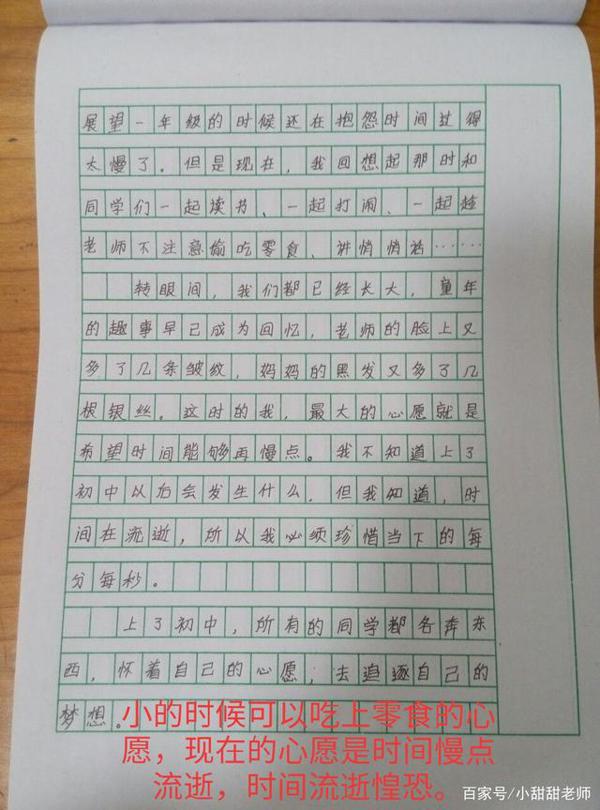 展望一年级的时候还在抱怨时间过得
太慢了。但是现在，我回想起那时和
同学们一起读书、一起打闹、一起趁
老师不注意偷吃零食、讲悄悄话……
转眼间，我们都已经长大，童年
的趣事早已成为回忆，老师的脸上又
多了几条皱纹，妈妈的黑发又多了几
根银丝。这时的我，最大的心愿就是
希望时间能够再慢点。我不知道上了
初中以后会发生什么，但我知道，时
间在流逝，所以我必须珍惜当下的每
分每秒。
上了初中，所有的同学都各奔东
西，怀着自己的心愿，去追逐自己的
梦想。
小的时候可以吃上零食的心
愿，现在的心愿是时间慢点
流逝，时间流逝惶恐。
百家号/小甜甜老师